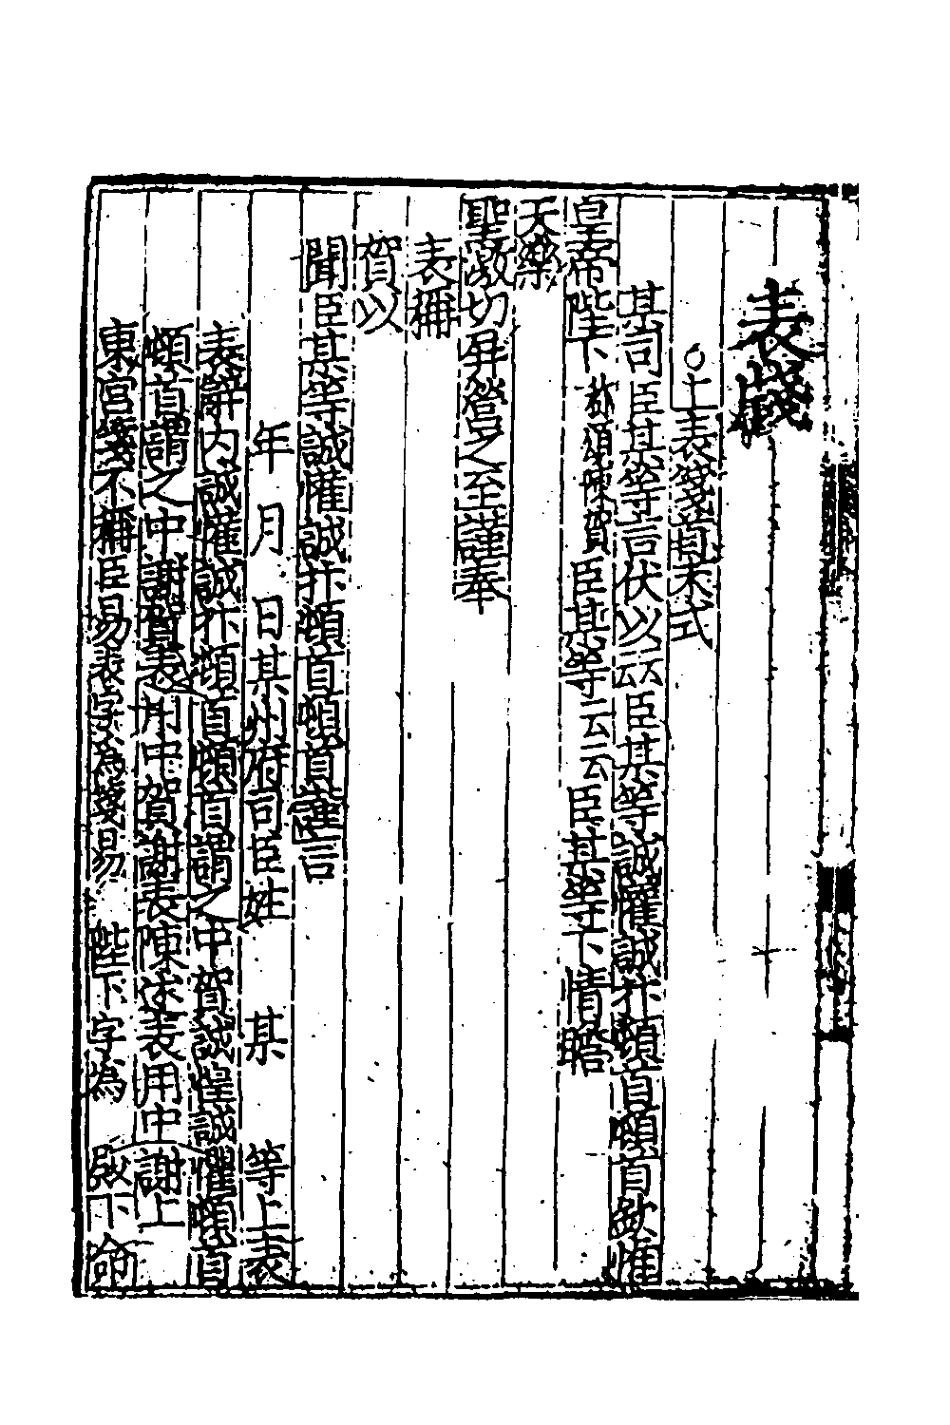 表牋
○上表箋首末式
某司臣某等言伏以云云臣某等誠懽誠抃頓首頓首欽惟
皇帝陛下称頌陳賀臣某等云云臣某等下情瞻
天樂
聖激切屏營之至謹奉
表稱
賀以
聞臣某等誠懽誠抃頓首頓首謹言
年月日某州府司臣姓某等上表
表辭内誠懽誠抃頓首頓首謂之中賀誠惶誠懽頓首
頓首謂之中謝賀表用中賀謝表陳述表用中謝上
東宮箋不稱臣易表字為箋易陛下字為殿下命